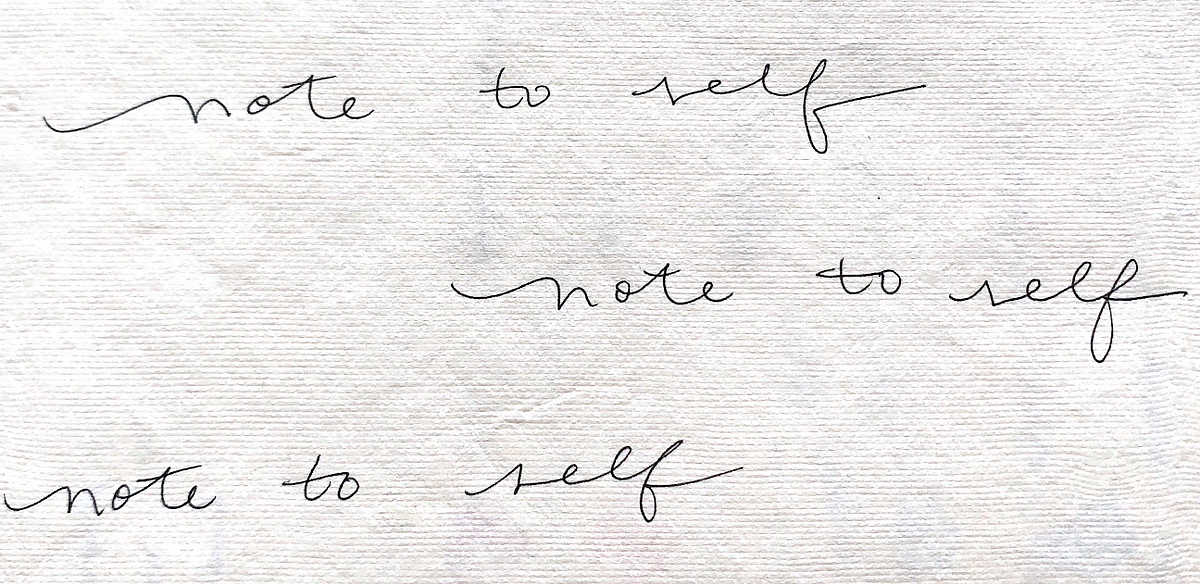 note to self
note to self
note to self